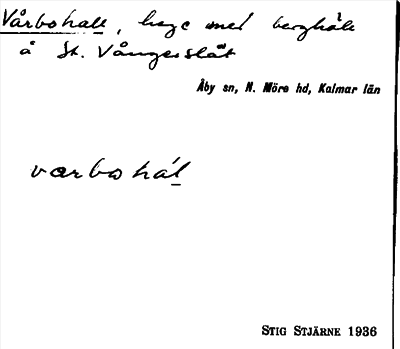 Vårbohall, hage med berghäll
å St. Vångerslät
Åby sn, N. Möre hd, Kalmar län
varbohál
STIG STJÄRNE 1936